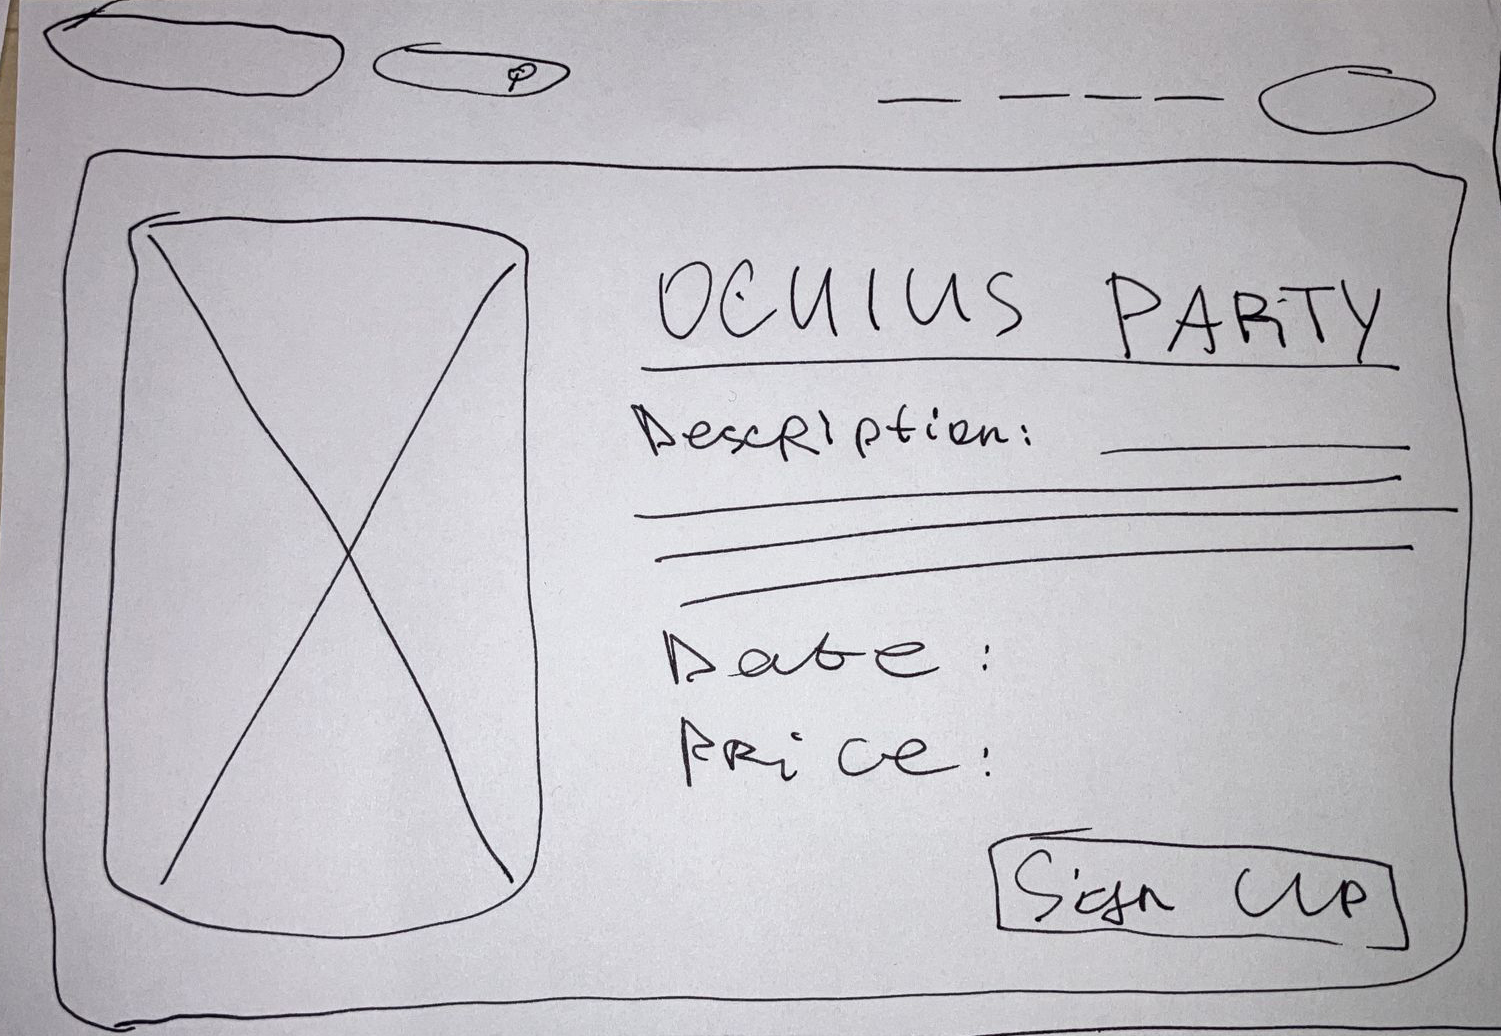 OCUIUS PARTY
Description:
Date:
Price:
Sign Up